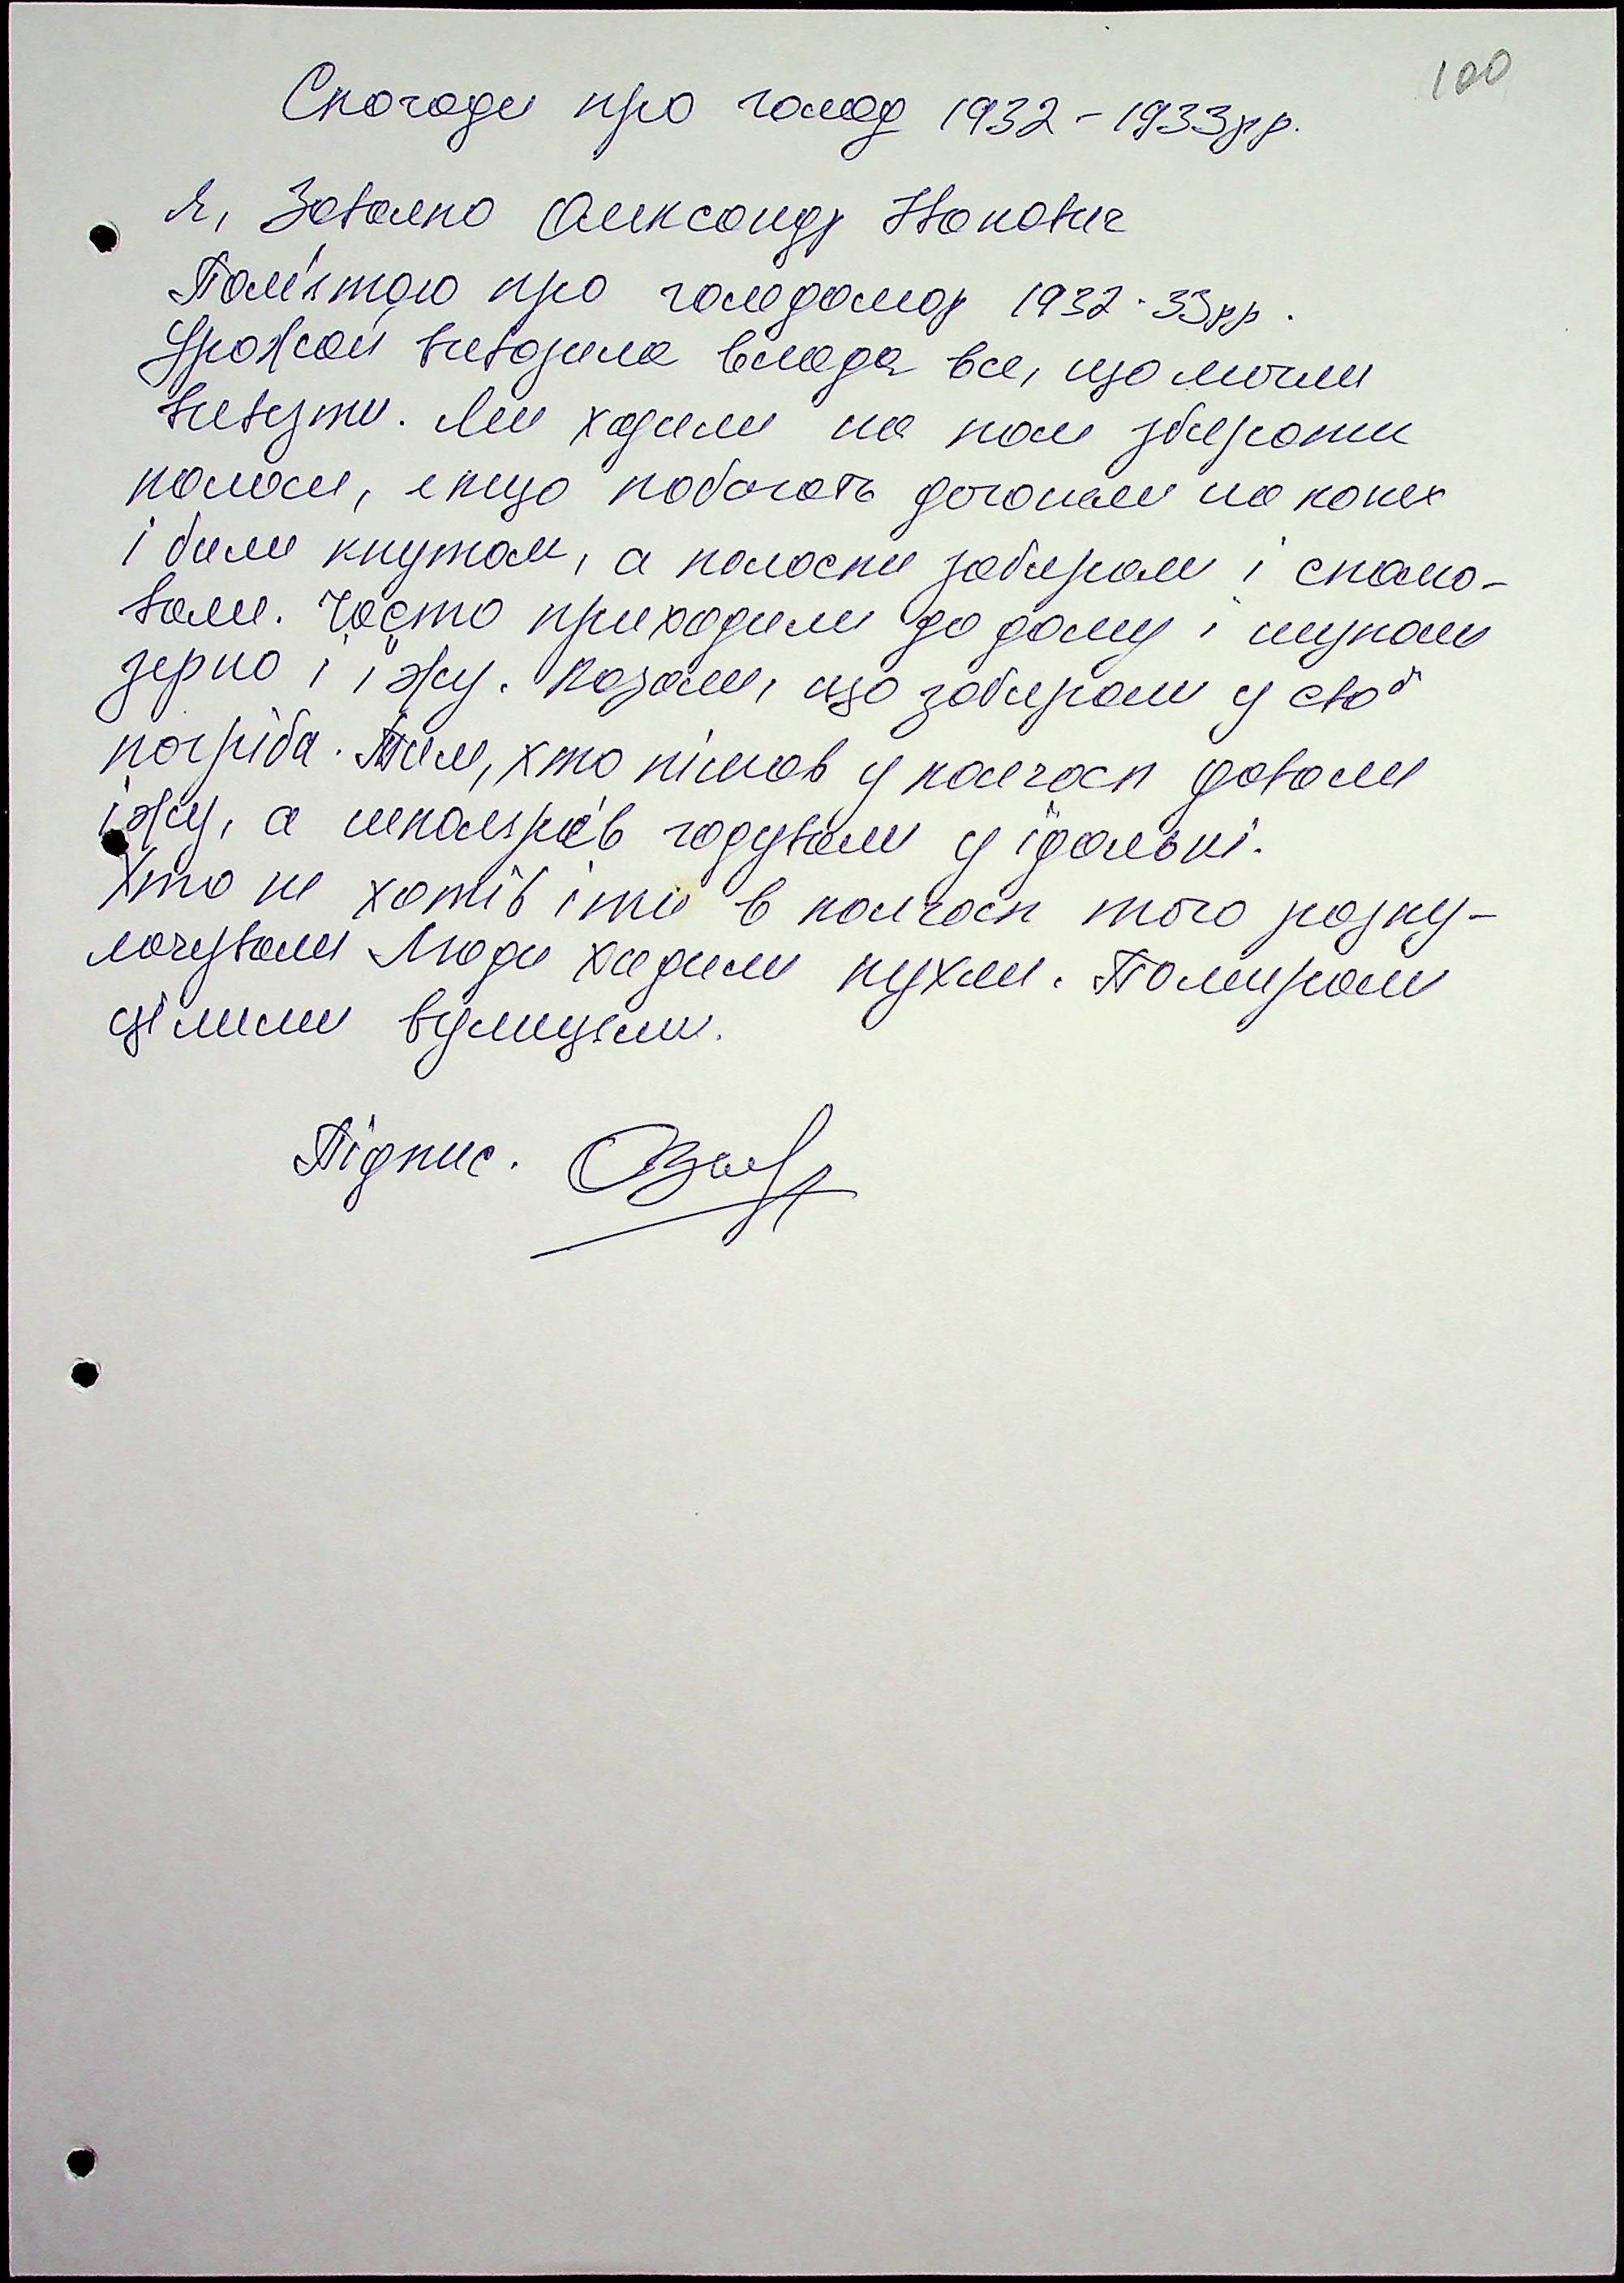 100
Спогади про голод 1932-1933рр.
Я, Завалко Олександр Іванович
Пам'ятаю про голодомор 1932-33рр.
Урожай вивозила влада все, що могли
вивезти. Ми ходили на поле збирати
колоски, якщо побачать догоняли на конях
і били кнутом, а колоски забирали і спалю-
вали. Часто приходили до дому і шукали
зерно і їжу. Казали, що забирали у своб
погріба. Тим, хто пішов у колгосп давали
їжу, а школярів годували у їдальні.
Хто не хотів іти в колгосп того розку-
лачували Люди ходили пухлі. Помирали
цілими вулицями.
Підпис.